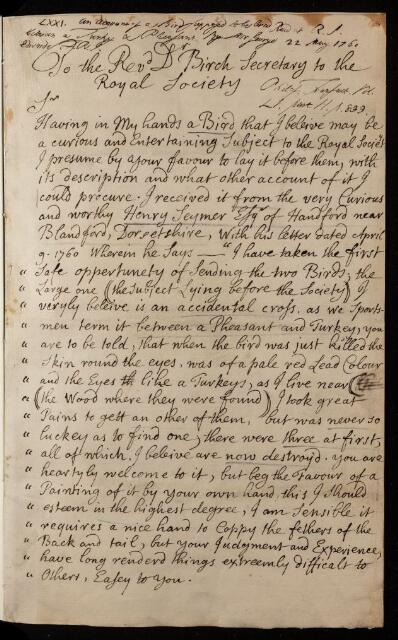 LXXI. An account of a Bird supposed to be bred between a Turkey & a Pheasant. By Mr Read at R.S. 22 May 1760.
To the Revd. Dr Birch Secretary to the
Royal Society
Sr
Having in My hands a Bird that I beleive may be
a curious and Entertaining Subject to the Royal Society
I presume by your favour to lay it before them, with
its description and what other account of it I
could procure. I received it from the very Curious
and worthy Henry Seymer Esqr of Handford near
Blandford, Dorsetshire, With his letter dated April
9. 1760 Wherein he Says — "I have taken the first
" Safe oppertunety of Sending the two Birds, the
" Large one (the Subject Lying before the Society) I
" veryly beleive is an accidental cross, as we Sports-
" men term it between a Pheasant and Turkey, you
" are to be told, that when the bird was just killed the
" Skin round the eyes, was of a pale red Lead Colour
" and the Eyes like a Turkeys, as I live near
" (the Wood where they were found) I took great
" Pains to gett an other of them, but was never so
" luckey as to find one, there were three at first,
" all of which, I beleive are now destroyd. you are
" heartyly welcome to it, but beg the Favour of a
" Painting of it by your own hand, this I Should
" esteem in the highest degree, I am Sensible it
" requires a nice hand to Coppy the fethers of the
" Back and tail, but your Judgment and Experience,
" have long renderd things extreemly difficalt to
" Others, Easey to you.